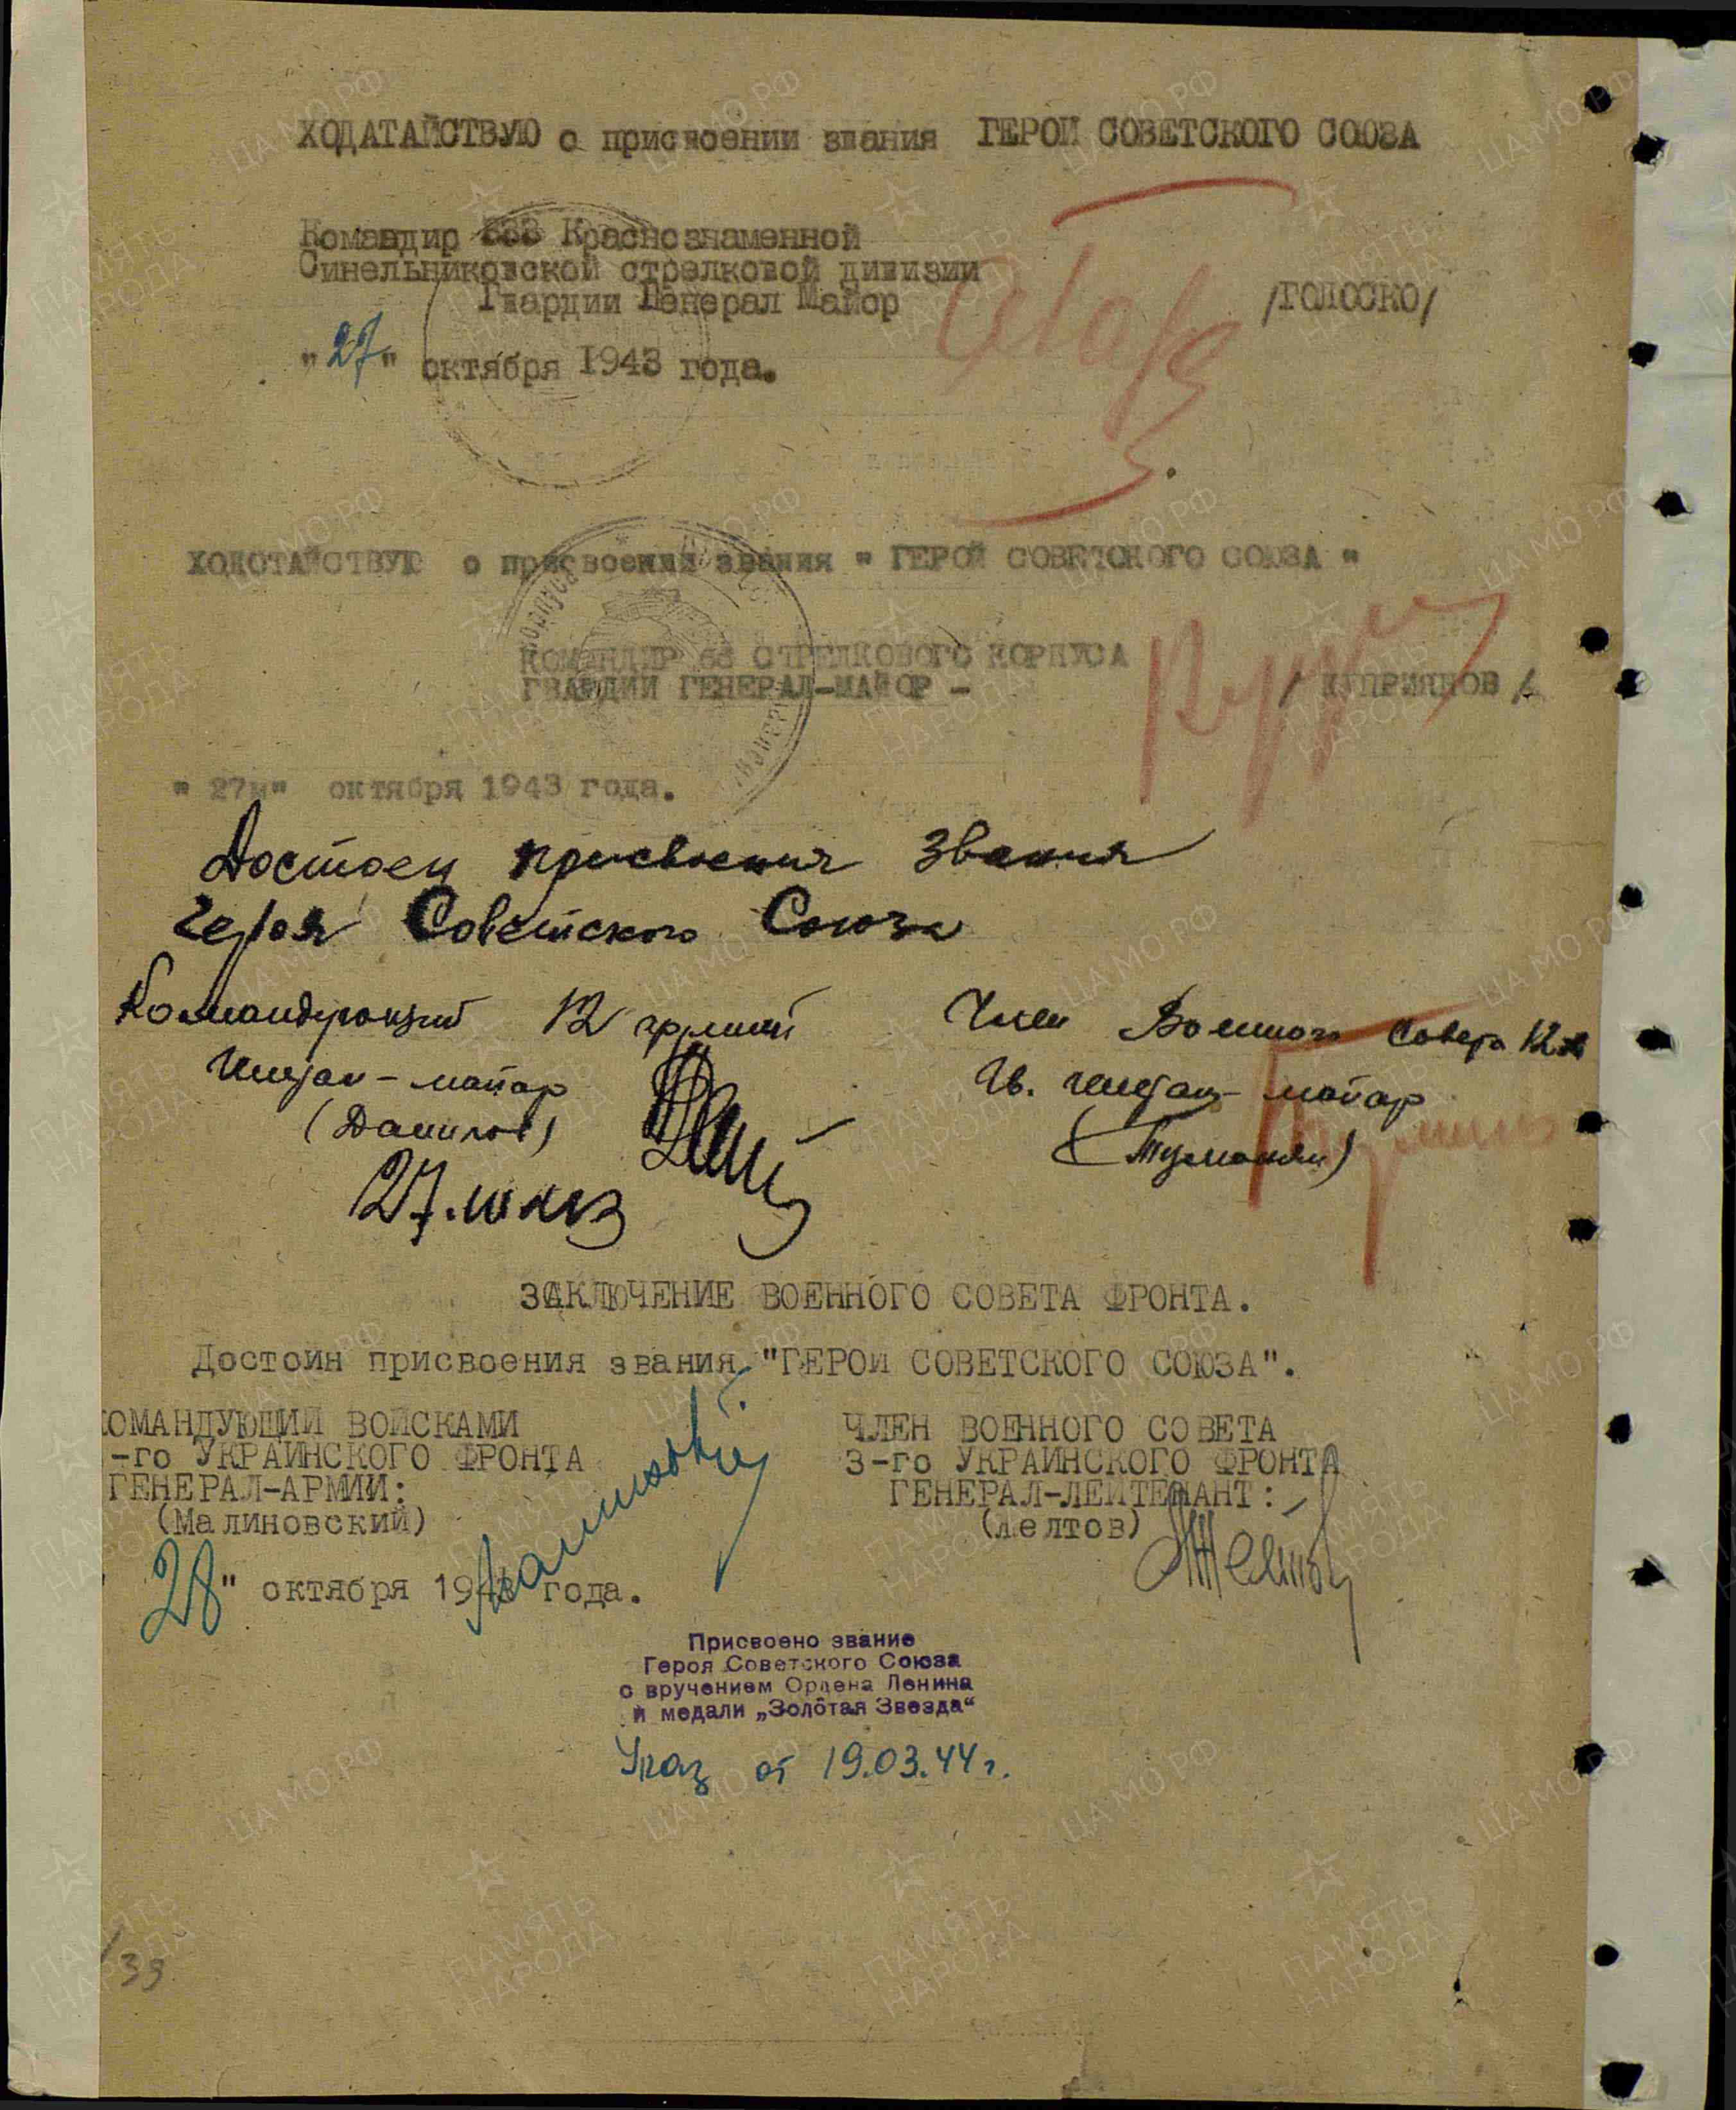 ХОДАТАЙСТВУЮ о присвоении звания ГЕРОЙ СОВЕТСКОГО СОЮЗА
Командир 333 Краснознаменной
Синельниковской стрелковой дивизии
Гвардии Генерал Майор /ГОЛОСКО/
"27" октября 1943 года.
ХОДОТАЙСТВУЮ о присвоении звания " ГЕРОЙ СОВЕТСКОГО СОЮЗА "
КОМАНДИР 66 СТРЕЛКОВОГО КОРПУСА
ГВАРДИИ ГЕНЕРАЛ-МАЙОР - / КУПРИЯНОВ /
" 27м" октября 1943 года.
Достоен присвоения звания
Героя Советского Союза
Командующий 12 армией
Генерал-майор
(Данилов)
27.
Член Военного Совета 12 А
Гв. генерал-майор
(Туманян)
ЗАКЛЮЧЕНИЕ ВОЕННОГО СОВЕТА ФРОНТА.
Достоин присвоения звания "ГЕРОЙ СОВЕТСКОГО СОЮЗА".
ОМАНДУЮЩИЙ ВОЙСКАМИ
-го УКРАИНСКОГО ФРОНТА
ГЕНЕРАЛ-АРМИИ:
(Малиновский)
28" октября 194 года.
ЧЛЕН ВОЕННОГО СОВЕТА
3-го УКРАИНСКОГО ФРОНТА
ГЕНЕРАЛ-ЛЕЙТЕНАНТ:
(Желтов)
Присвоено звание
Героя Советского Союза
с вручением Ордена Ленина
и медали „Золотая Звезда“
Указ от 19.03.44 г.
39
ЦА МО РФ
ПАМЯТЬ
НАРОДА